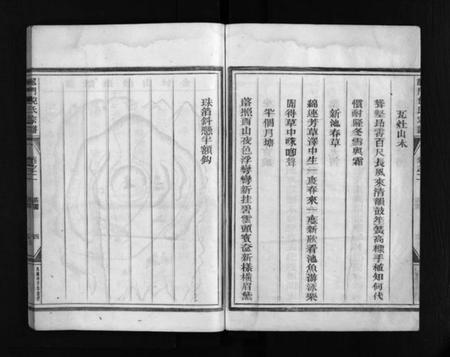 瓦灶山木
聳壑昂霄百尺長風來清韻鼓笙簧高標手植知何代
慣耐隆冬雪與霜
新池春草
綿連芳草澤中生一度春來一度新欣看池魚游泳樂
閒得草中咏嘯聲
半個月塘
落照西山夜色浮彎彎新挂碧雲頭寳奩新樣橫眉黛
珠箔斜懸半額鈎